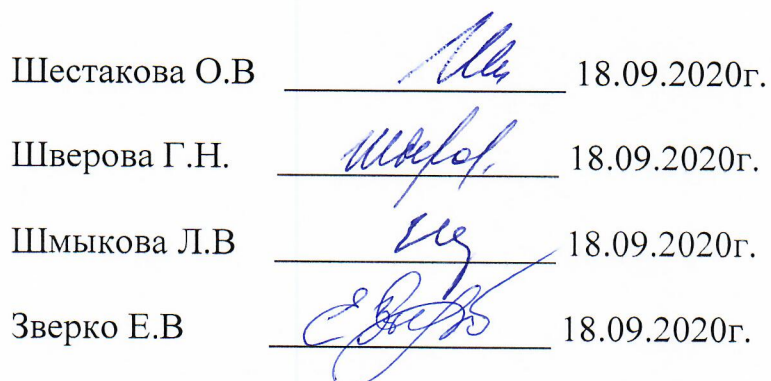 Шестакова О.В 18.09.2020г.
Шверова Г.Н. 18.09.2020г.
Шмыкова Л.В 18.09.2020г.
Зверко Е.В 18.09.2020г.